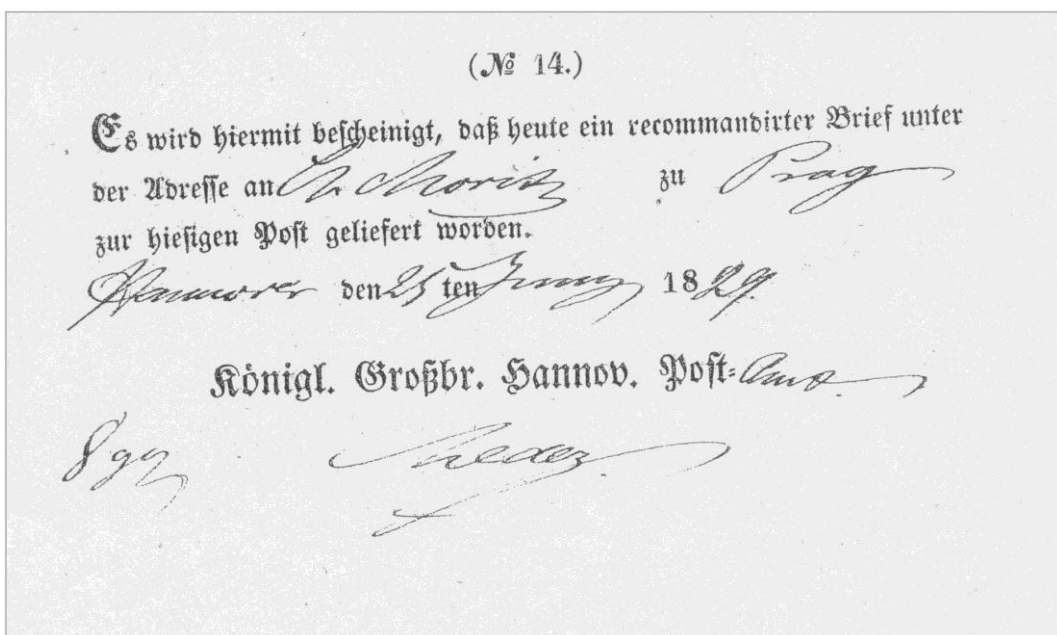 (№ 14.)
Es wird hiermit bescheinigt, daß heute ein recommandirter Brief unter
der Adresse an Moritz zu Prag
zur hiesigen Post geliefert worden.
Hannover den 25 ten Juny 1829.
Königl. Großbr. Hannov. Post-Amt.